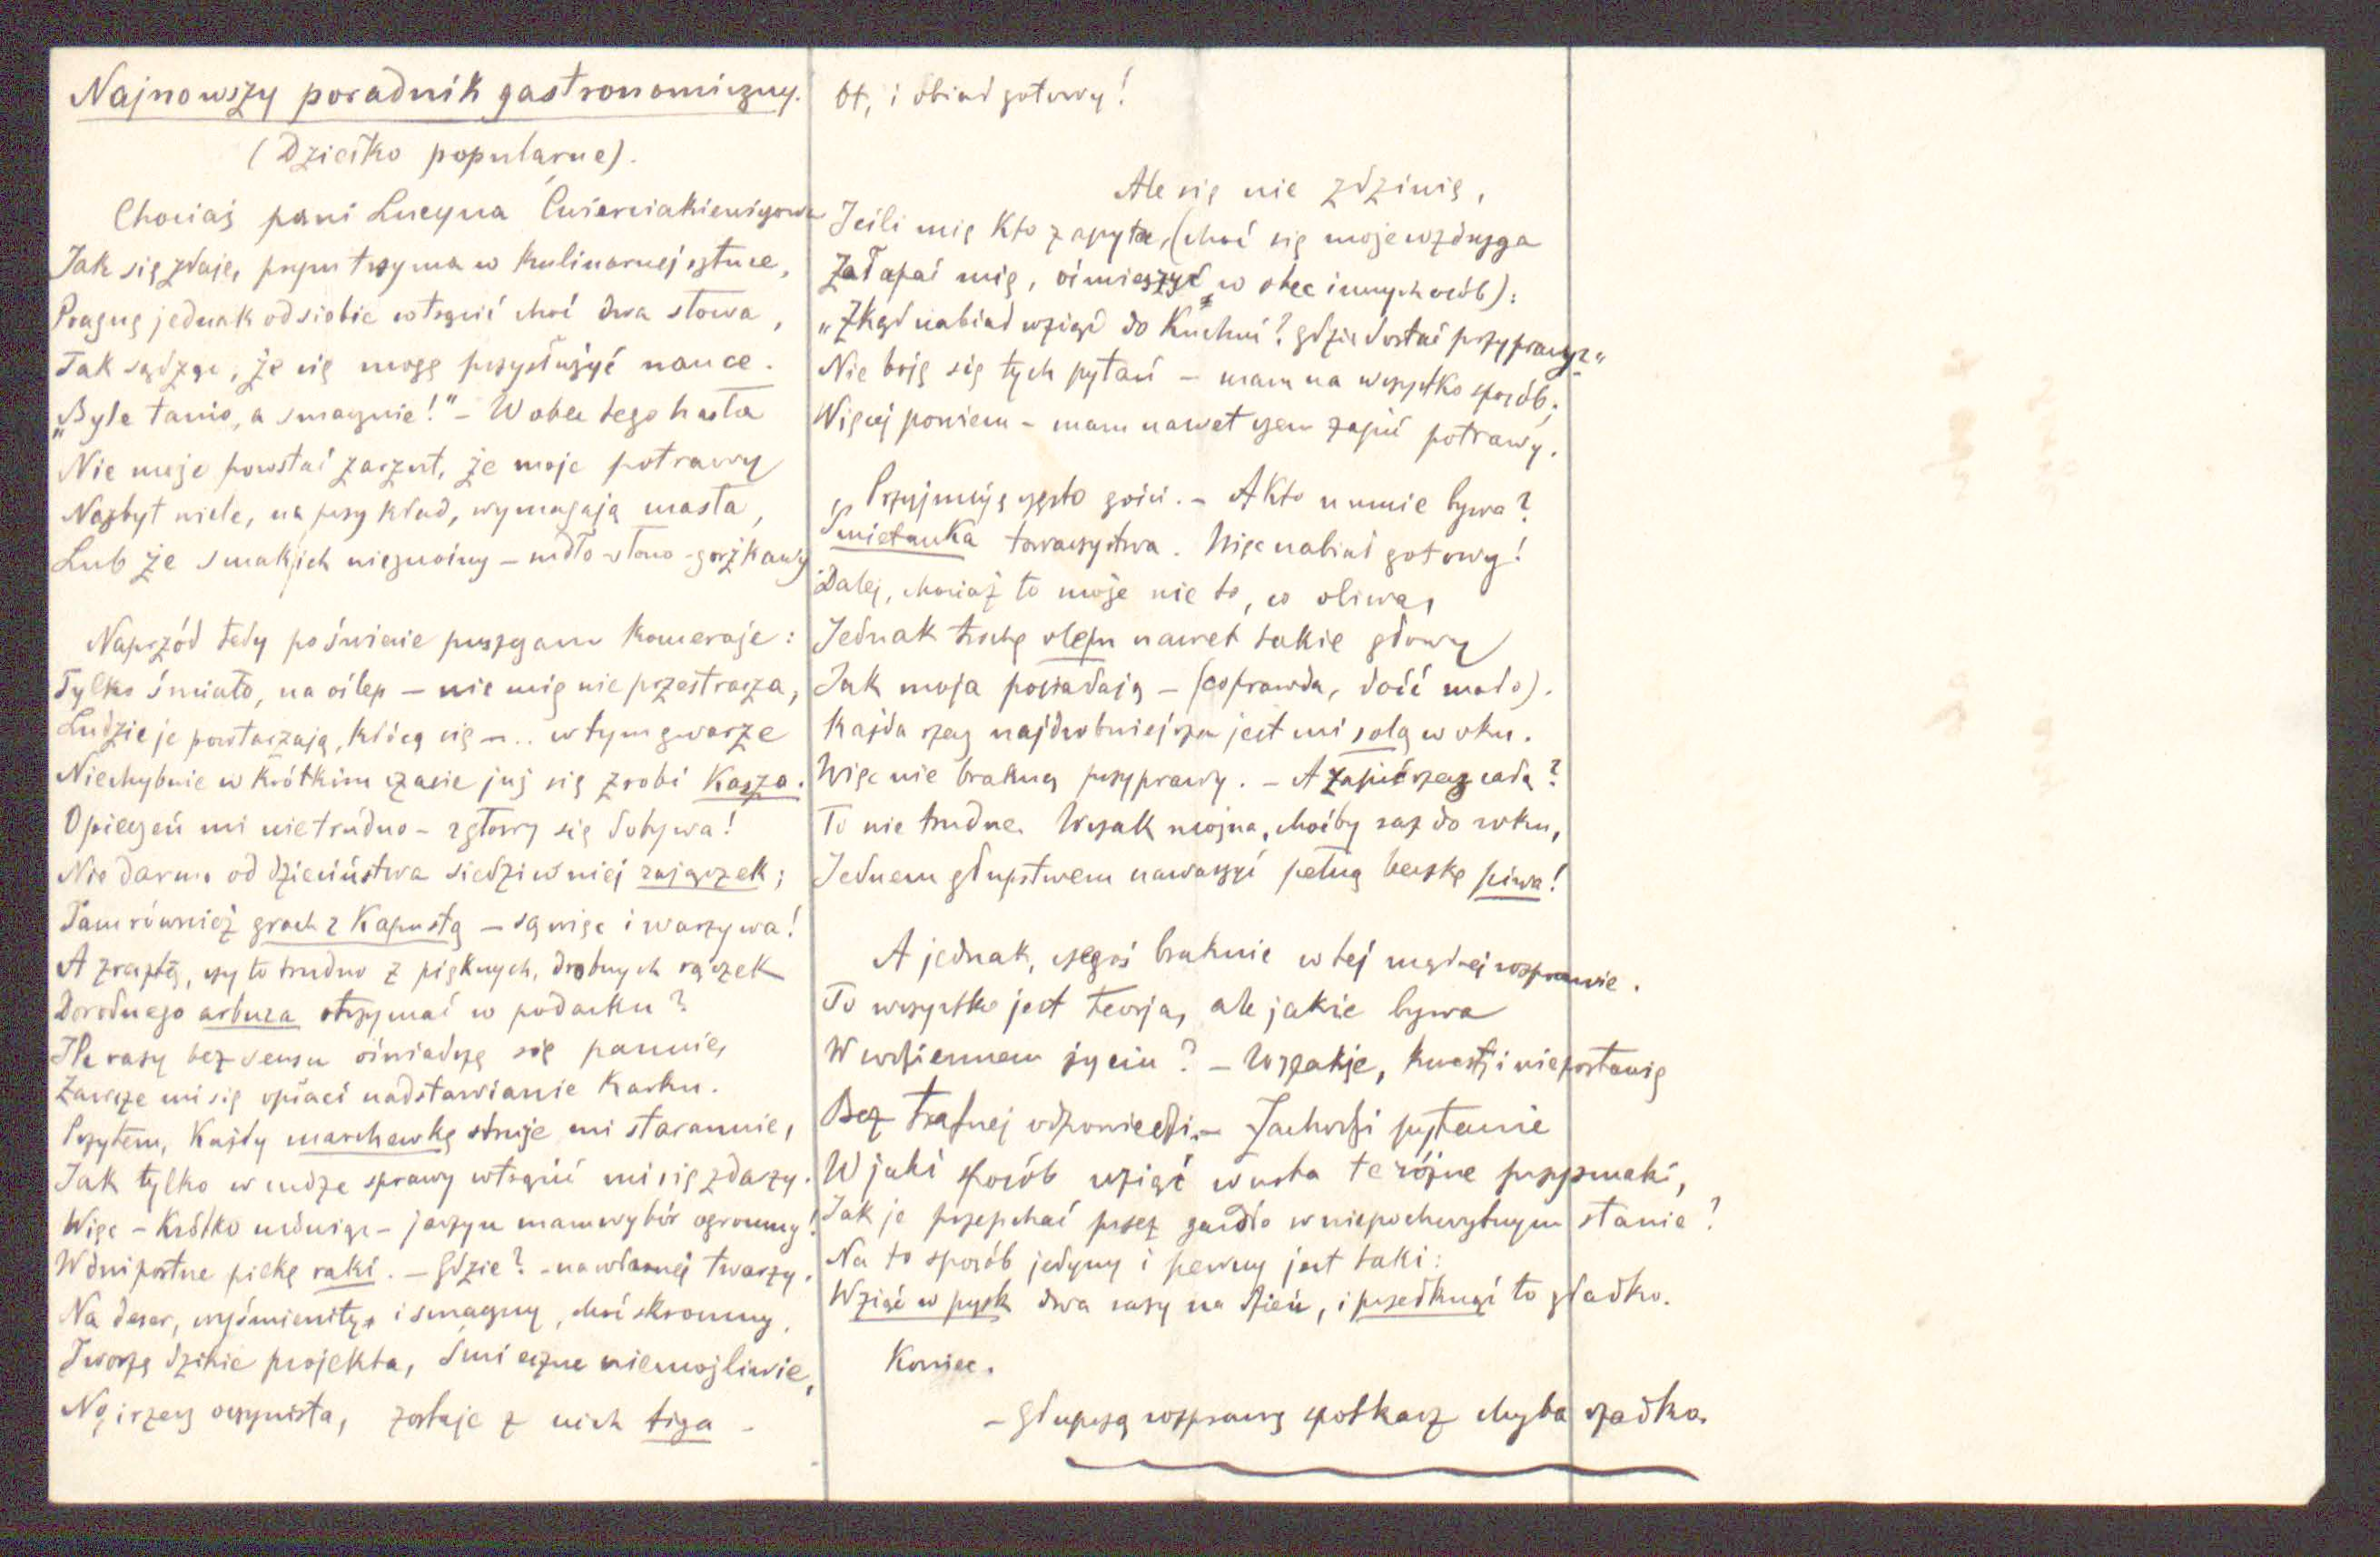 Najnowszy poradnik gastronomiczny.
(Dziełko popularne).
Chociaż pani Lucyna Ćwierciakiewiczowa
Jak się zdaje, prym trzyma w kulinarnej sztuce,
Pragnę jednak od siebie wtrącić choć dwa słowa,
Tak sądząc, że się mogę przysłużyć nauce.
„Byle tanio, a smacznie!" – Wobec tego hasła
Nie może powstać zarzut, że moje potrawy
Nazbyt wiele, na przykład, wymagają masła,
Lub że smak ich nieznośny – mdło-słono-gorzkawy
Naprzód tedy po świecie puszczam komeraże:
Tylko śmiało, na oślep – nic mię nie przestrasza,
Ludzie je powtarzają, kłócą się – .. w tym gwarze
Niechybnie w krótkim czasie już się zrobi kasza.
O pieczeń mi nietrudno – z głowy się dobywa!
Nie darmo od dzieciństwa siedzi w niej zajączek;
Tam również groch z kapustą – są więc i warzywa!
A zresztą, czy to trudno z pięknych, drobnych rączek
Dorodnego arbuza otrzymać w podarku?
Ile razy bez sensu oświadczę się pannie,
Zawsze mi się opłaci nadstawianie karku.
Przytem, każdy marchewkę struże mi starannie,
Jak tylko w cudze sprawy wtrącić mi się zdarzy.
Więc – krótko mówiąc – jarzyn mam wybór ogromny!
W dni postne piekę raki. – Gdzie? – na własnej twarzy.
Na deser, wyśmienity i smaczny, choć skromny,
Tworzę dzikie projekta, śmieszne niemożliwie,
No, i rzecz oczywista, zostaje z nich figa –
Ot, i obiad gotowy!
Ale się nie zdziwię,
Jeśli mię kto zapyta, (choć się może wzdryga
Załapać mię, ośmieszyć w obec innych osób):
„Zkąd nabiał wziąć do kuchni? gdzie dostać przyprawy?"
Nie boję się tych pytań – mam na wszystko sposób;
Więcej powiem – mam nawet czem zapić potrawy.
Przyjmuję często gości. – A kto u mnie bywa?
Śmietanka towarzystwa. Więc nabiał gotowy!
Dalej, chociaż to może nie to, co oliwa,
Jednak trochę oleju nawet takie głowy
Jak moja posiadają – (coprawda, dość mało).
Każda rzecz najdrobniejsza jest mi solą w oku.
Więc nie brakną przyprawy. – A zapić rzecz całą?
To nie trudne. Wszak można, choćby raz do roku,
Jednem głupstwem nawarzyć pełną beczkę piwa!
A jednak, czegoś braknie w tej mądrej rozprawie.
To wszystko jest teorja, ale jakie bywa
W codziennem życiu? – Wszakże, kwestji nie postawię
Bez trafnej odpowiedzi. – Zachodzi pytanie
W jaki sposób wziąć w usta te różne przysmaki,
Jak je przepchać przez gardło w niepochwytnym stanie?
Na to sposób jedyny i pewny jest taki:
Wziąć w pysk dwa razy na dzień, i przełknąć to gładko.
Koniec.
– Głupszą rozprawę spotkasz chyba rzadko.